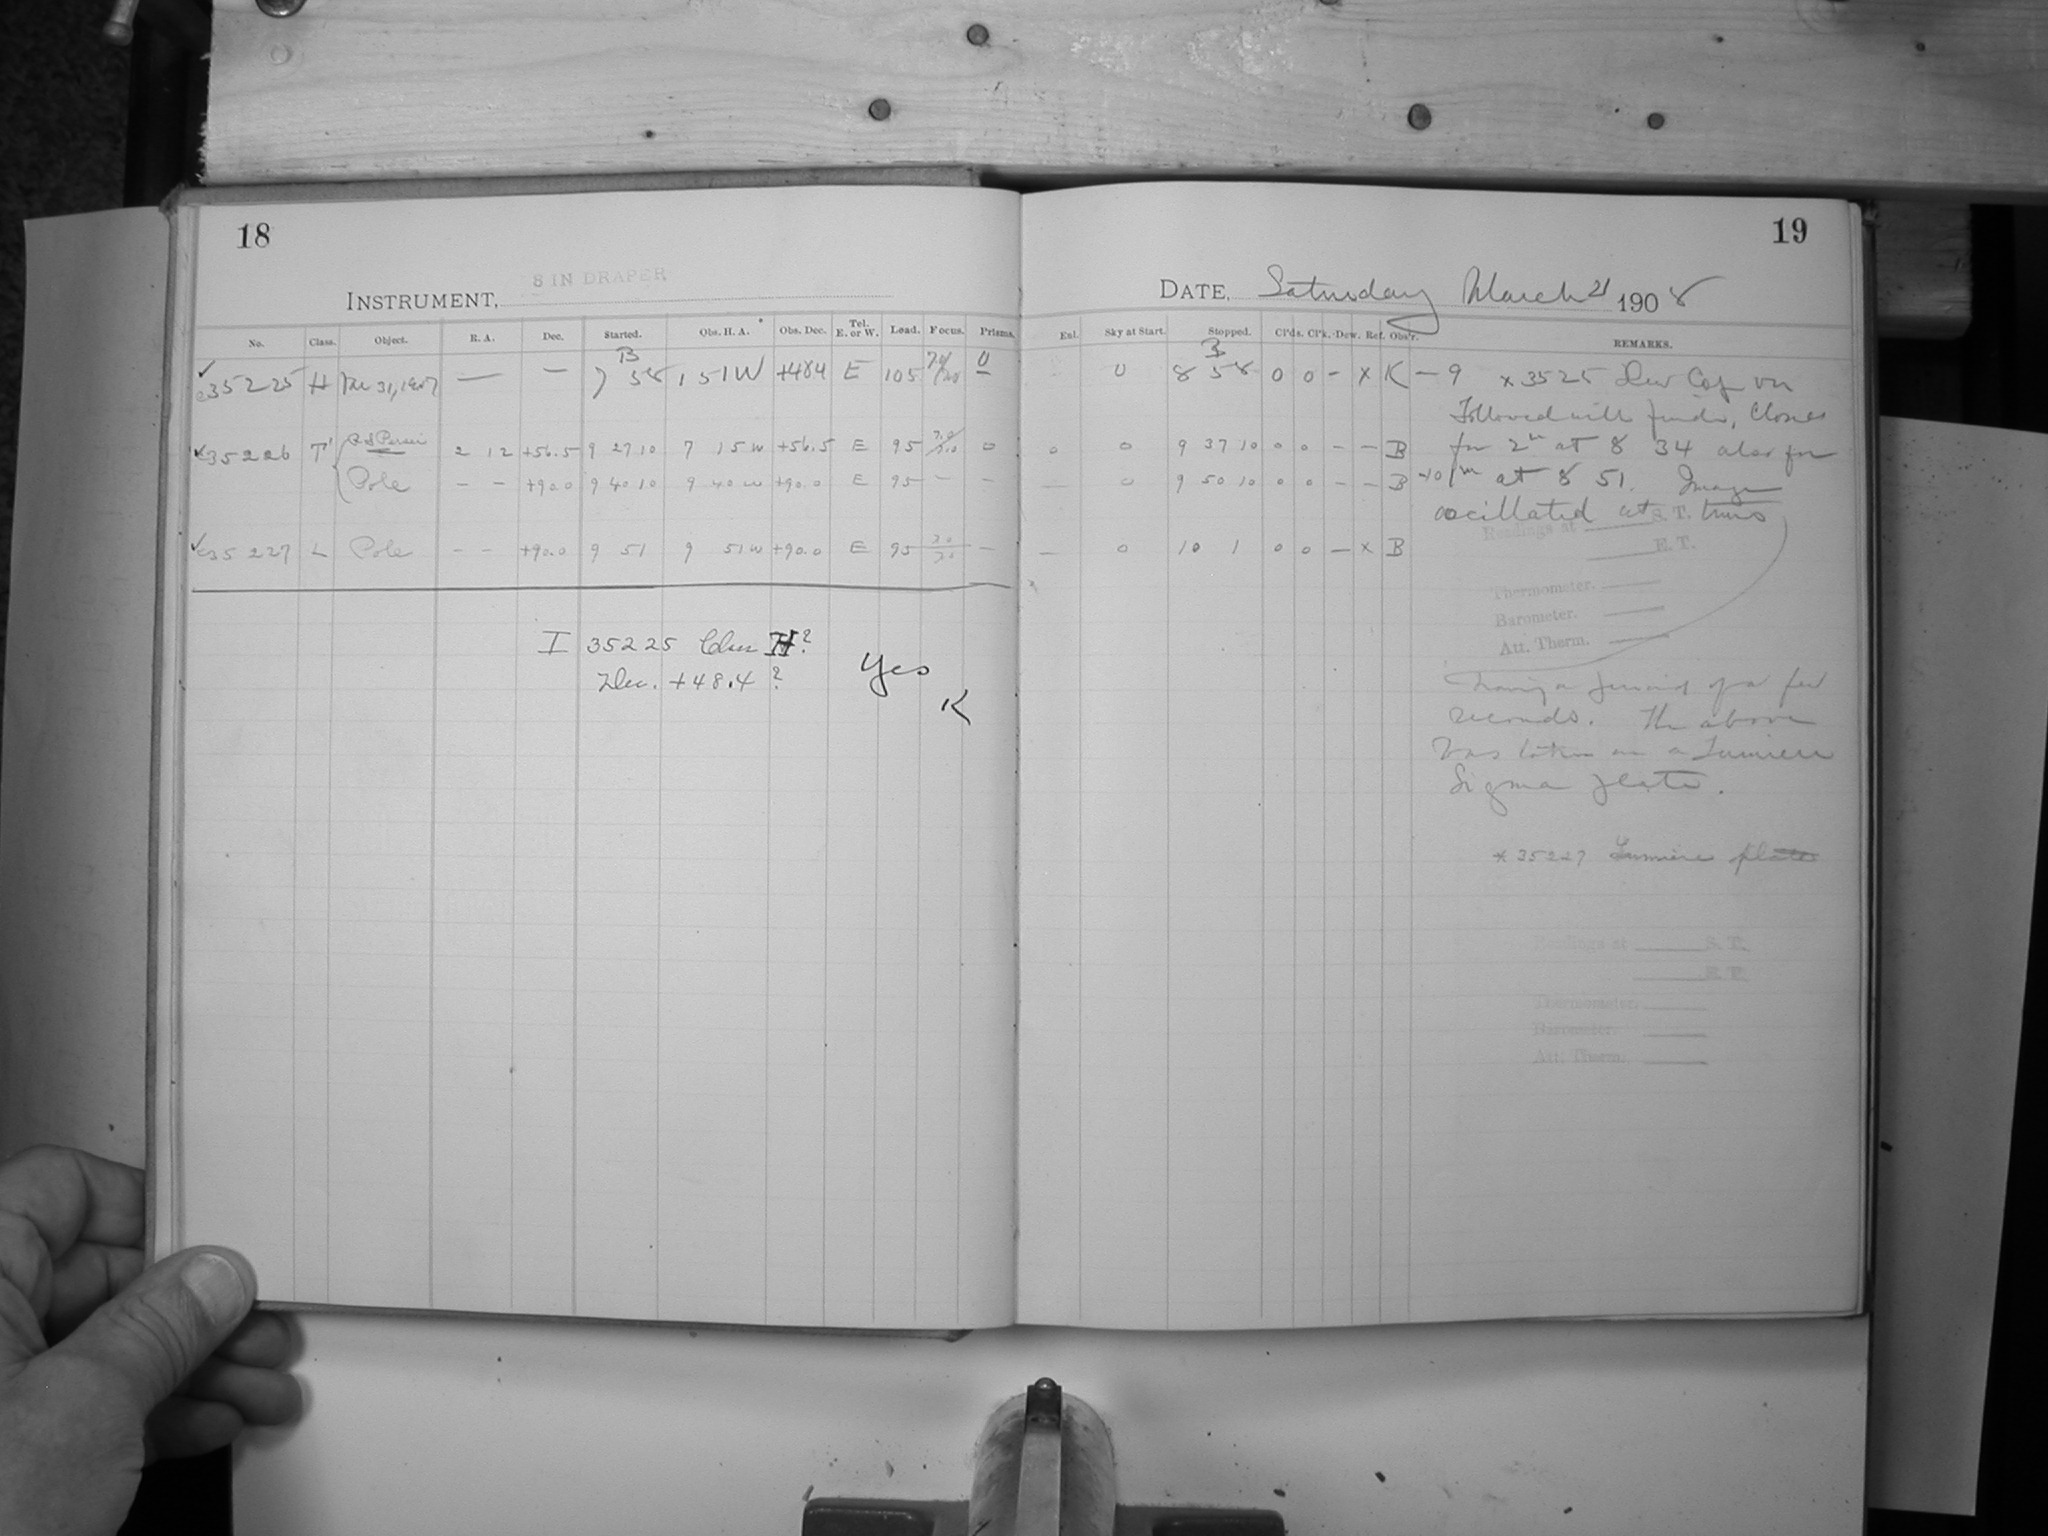 18
8 IN DRAPER
INSTRUMENT,
No. Class. Object. R. A. Dec. Started. Obs. H. A. Obs. Dec. Tel. E. or W. Load. Focus. Prisms.
35225 H 31, 1907 — — 7 58 1 51 W +484 E 105 0
35226 T 2 12 +56.5 9 27 10 7 15 W +56.5 E 95 0
Pole – – +90.0 9 40 10 9 40 W +90.0 E 95 – –
35227 L Pole – – +90.0 9 51 9 51 W +90.0 E 95 –
I 35225 Class H?
Dec. +48.4 ?
Yes
K
19
DATE, Saturday March 21 1908
Enl. Sky at Start. Stopped. Cl'ds. Cl'k. Dew. Ref. Obs'r. REMARKS.
0 8 58 0 0 – x K – 9 x 3525 Dew Cap on
Followed with finder, Clouds
0 0 9 37 10 0 0 – – B for 2m at 8 34 also for
— 0 9 50 10 0 0 – – B 1m at 8 51. Image
oscillated at times
Readings at S. T.
— 0 10 1 0 0 – x B
E. T.
Thermometer.
Barometer.
Att. Therm.
having a period of a few
seconds. The above
was taken on a Lumiere
Sigma plate.
* 35227 Lumiere plate
Readings at S. T.
E. T.
Thermometer.
Barometer.
Att. Therm.